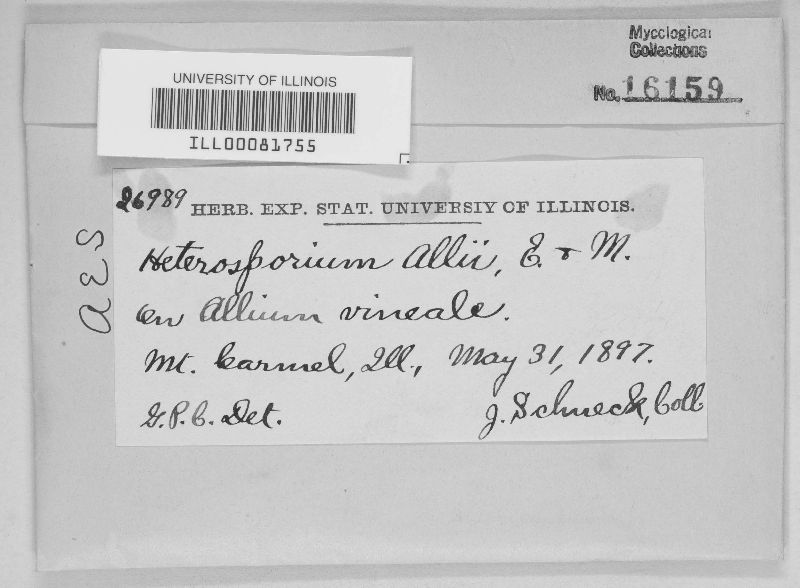 Mycological
Collections
No. 16159
UNIVERSITY OF ILLINOIS
ILL00081755
26989 HERB. EXP. STAT. UNIVERSIY OF ILLINOIS.
Heterosporium Allii, E. & M.
on Allium vineale.
Mt. Carmel, Ill., May 31, 1897.
G.P.C. Det. J. Schneck, Coll
AES